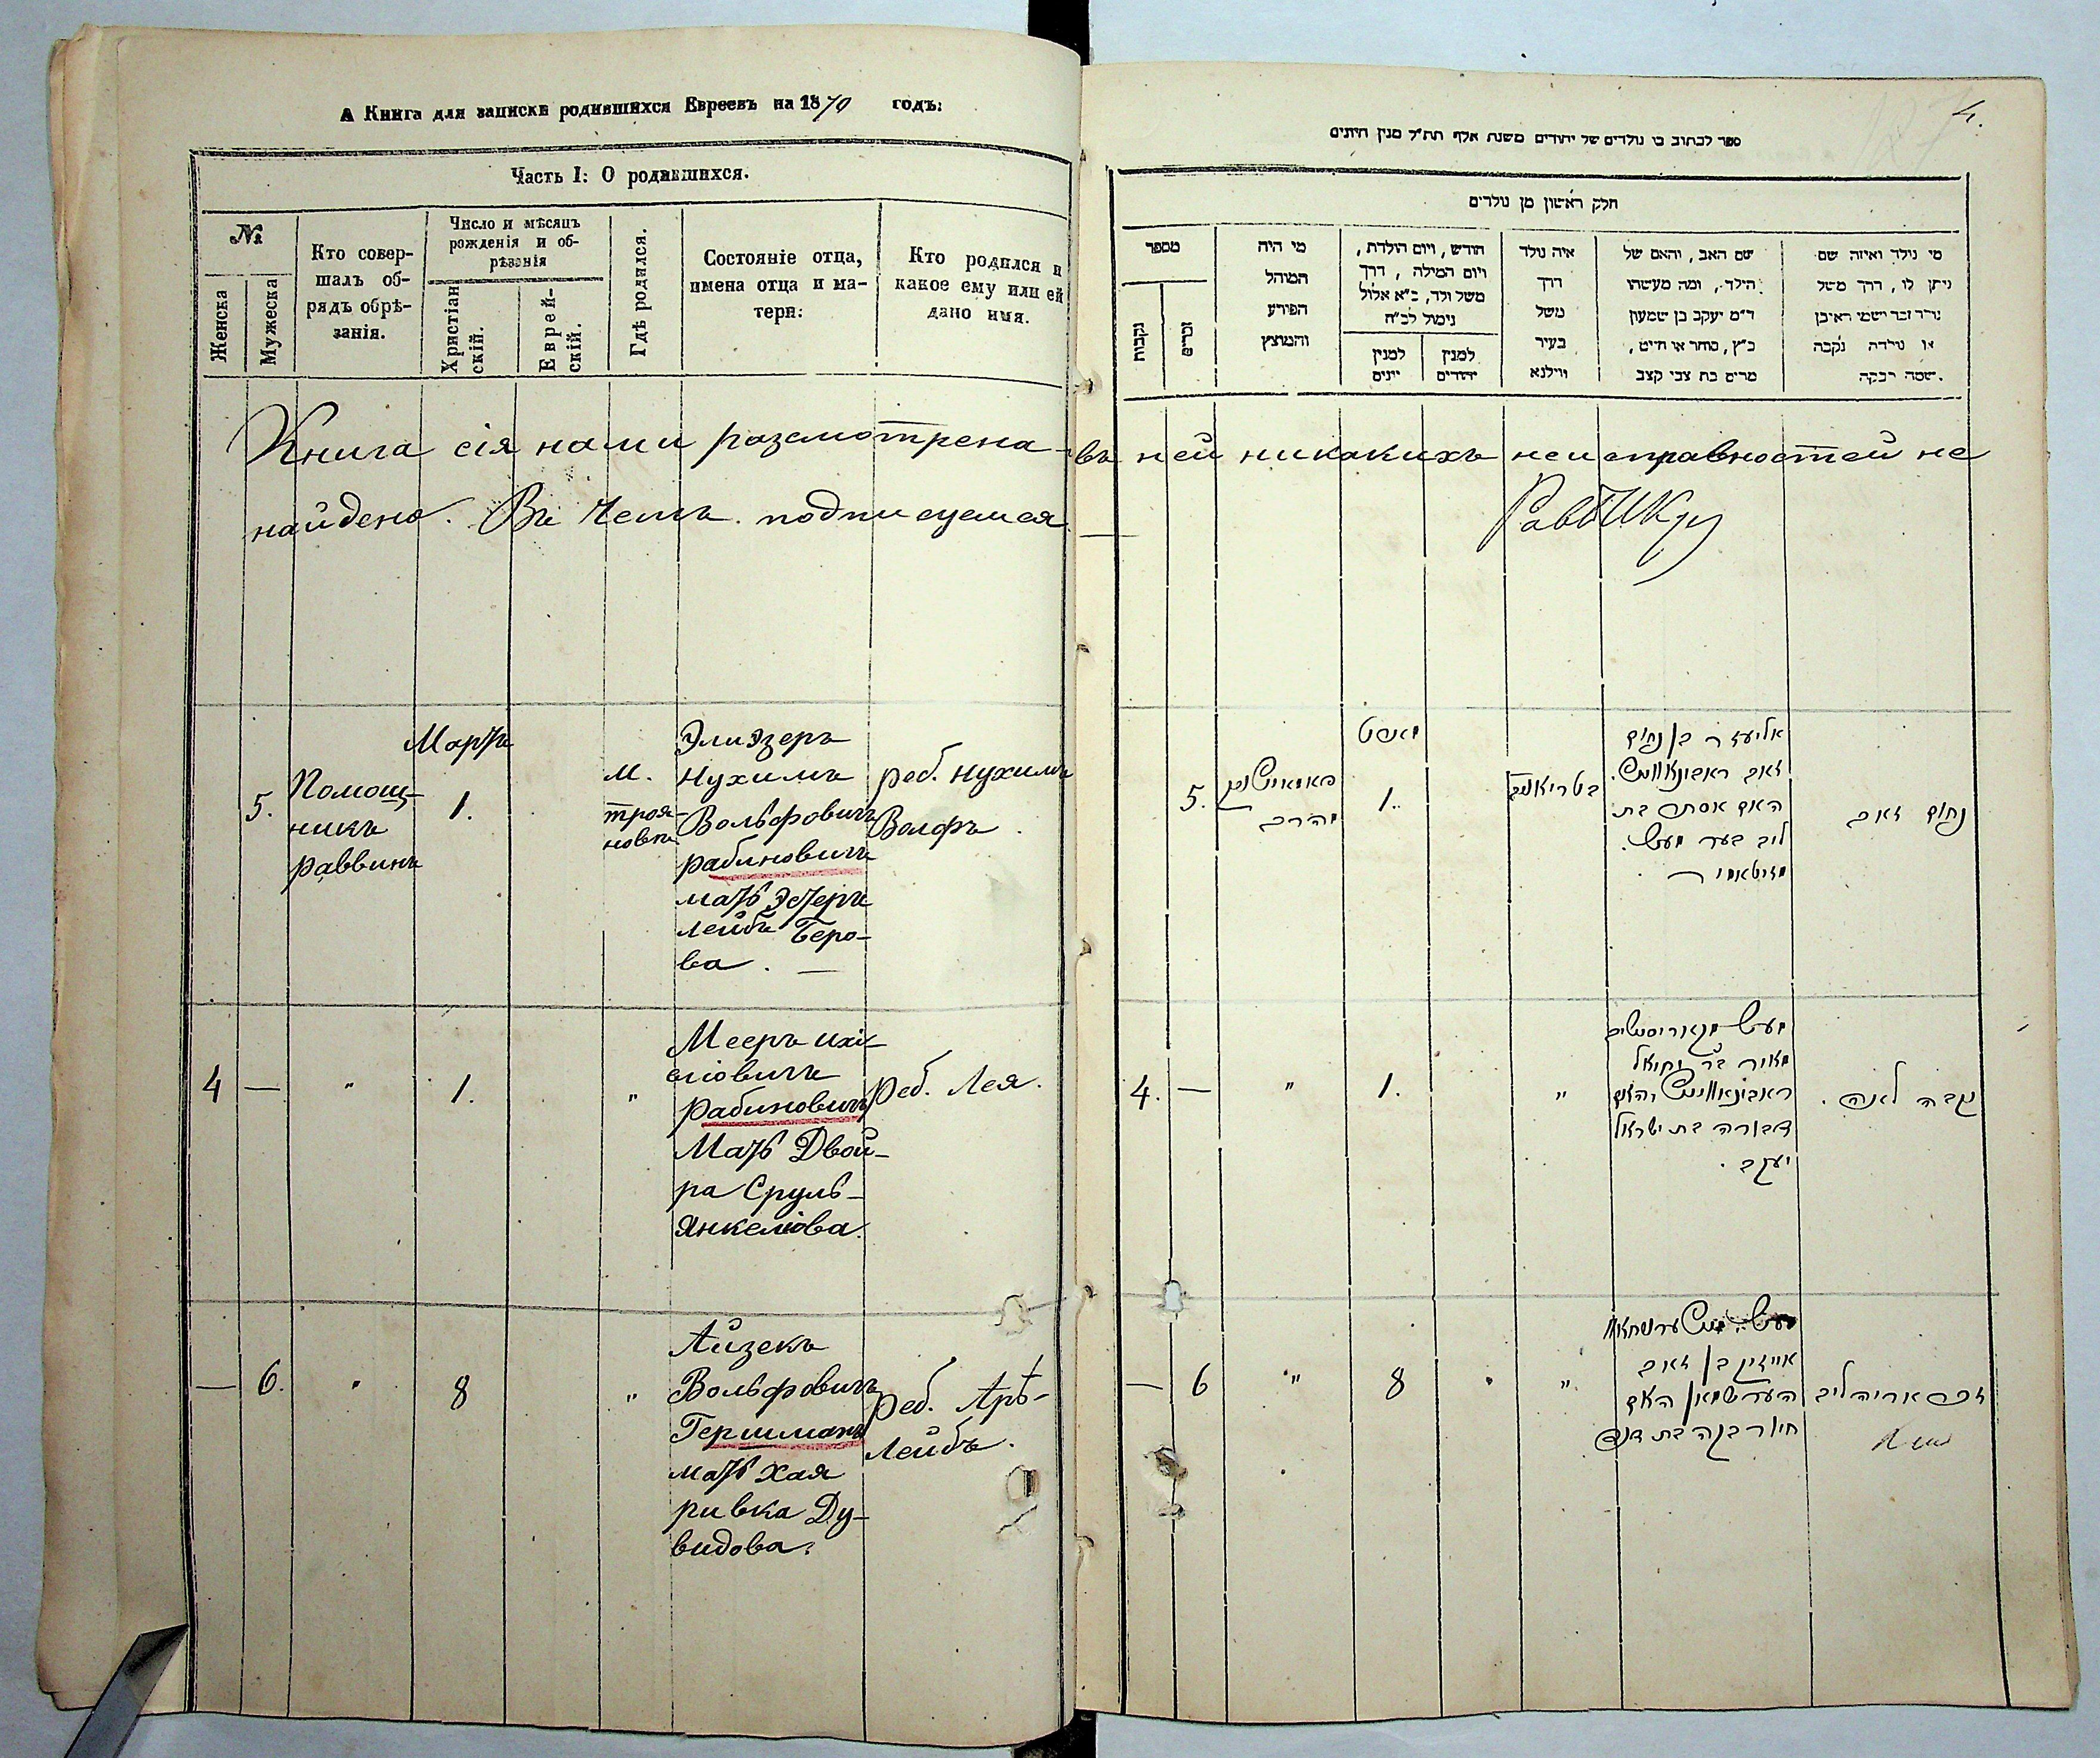 А Книга для записки родившихся Евреевъ на 1870 годъ:
Часть I: О родившихся.
№
Женска
Мужеска
Кто совер-
шалъ об-
рядъ обрѣ-
занія.
Число и мѣсяцъ
рожденія и об-
рѣзанія
Христіан
скій.
Еврей-
скій.
Гдѣ родился.
Состояніе отца,
имена отца и ма-
тери:
Кто родился и
какое ему или ей
дано имя.
Книга сія нами разсмотрена въ ней никакихъ неисправностей не
найдено. Въ чемъ подписуемся
5.
Помощ-
никъ
раввинъ
Мартъ
1.
м.
троя-
новка
Элиэзеръ
Нухимъ
Вольфовичъ
рабиновичъ
мать Эстеръ
лейбъ Беро-
ва. —
реб. Нухимъ
Волфъ
4 — " 1. "
Мееръ ихі-
еліовичъ
рабиновичъ
Мать Двой-
ра Сруль-
Янкеліова.
реб. Лея.
— 6. " 8 "
Айзекъ
Вольфовичъ
Гершманъ
мать Хая
ривка Ду-
видова.
реб. Аръ-
Лейбъ.
4.
ספר לכתוב בו נולדים של יהודים משנת אלף תת״ל מנין היונים
חלק ראשון מן נולדים
מי נולד ואיזה שם
ניתן לו, דרך משל
נולד זכר ושמו ראובן
או נולדה נקבה
שמה רבקה.
שם האב, והאם של
הילד, ומה מעשהו
ד״מ יעקב בן שמעון
כ״ץ, סוחר או חייט,
מרים בת צבי קצב
איה נולד
דרך
משל
בעיר
ווילנא
חודש, ויום הולדת,
ויום המילה, דרך
משל ולד, כ״א אלול
נימול לכ״ח
למנין
יהודים
למנין
יונים
מי היה
המוהל
הפורע
והמוצץ
מספר
זכרים
נקבות
נחום זאב
אליעזר בן נחום
זאב ראבינאוויטש.
האם אסתר בת
ליב בער
1.
5.
נקבה לאה.
מאיר בר יחיאל
ראבינאוויטש והאם
דבורה בת ישראל
יעקב.
"
1.
"
—
4.
זכר אריה ליב
אייזיק בן זאב
הערשמאן האם
חיה רבקה בת דוד
"
8
"
6
—